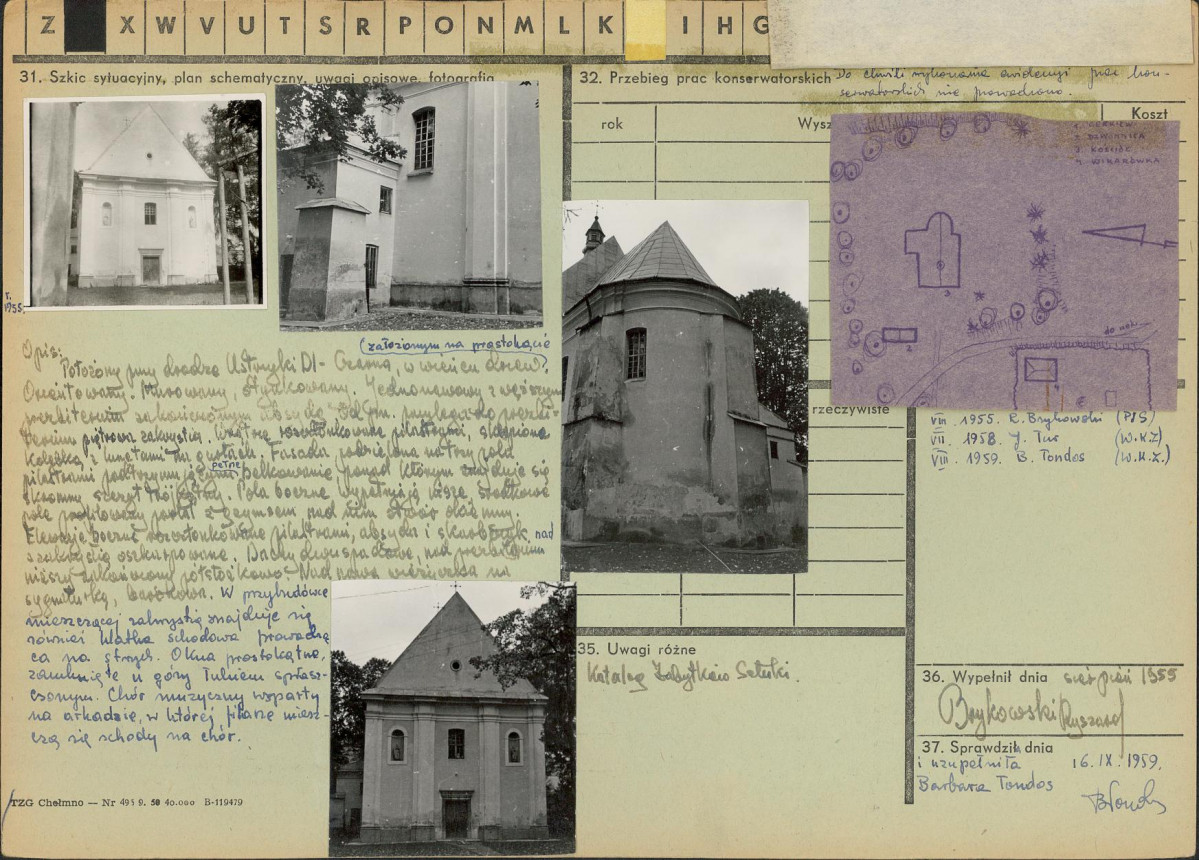 Z X W V U T S R P O N M L K I H G
31. Szkic sytuacyjny, plan schematyczny, uwagi opisowe, fotografia
r.
1955.
(założonym na prostokącie
Opis:
Położony przy drodze Ustrzyki Dl- Czarna, w wieńcu drzew.
Orientowany. Murowany, otynkowany. Jednonawowy z węższym
prezbiterium zakończonym absydą. Od płn. przylega do prezbi-
terium piętrowa zakrystia. Wnętrze rozczłonkowane pilastrami, sklepione
kolebką z lunetami na gurtach. Fasada podzielona na trzy pola
pilastrami podtrzymującymi pełne belkowanie ponad którym znajduje się
skromny szczyt trójkątny. Pola boczne wypełniają nisze, środkowe
pole profilowany portal z gzymsem nad nim otwór okienny.
Elewacje boczne rozczłonkowane pilastrami, absyda i skarbczyk nad
zakrystią oszkarpowane. Dachy dwuspadowe, nad prezbiterium
niższy zakończony półstożkowo. Nad nawą wieżyczka na
sygnaturkę, barokowa. W przybudówce
mieszczącej zakrystię znajduje się
również klatka schodowa prowadzą
ca na strych. Okna prostokątne,
zamknięte u góry łukiem spłasz-
czonym. Chór muzyczny wsparty
na arkadzie, w której filarze miesz-
czą się schody na chór.
TZG Chełmno — Nr 495 9. 58 40.000 B-119479
32. Przebieg prac konserwatorskich Do chwili wykonania ewidencji prac kon-
serwatorskich nie prowadzono.
rok
Wysz
Koszt
2. DZWONNICA
3. KOŚCIÓŁ
4. WIKARÓWKA
3
2
rzeczywiste
VIII 1955. R. Brykowski (PIS)
VII. 1958. J. Tur (W.K.Z)
VIII. 1959. B. Tondos (W.K.Z.)
35. Uwagi różne
Katalog Zabytków Sztuki.
36. Wypełnił dnia sierpień 1955
Brykowski Ryszard
37. Sprawdził dnia
i uzupełniła 16. IX. 1959.
Barbara Tondos
BTondos